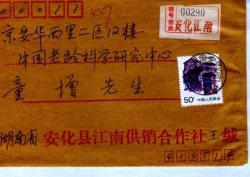 100011
京安华西里二区12楼
中国老龄科研究中心
童增 先生
挂号信函
00290
安化江南
50分
中国人民邮政
湖南省 安化县江南供销合作社 王
413514